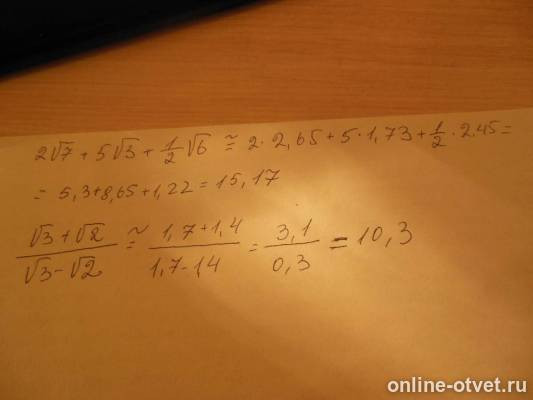 2√7 + 5√3 + 1/2 √6 ≅ 2 · 2,65 + 5 · 1,73 + 1/2 · 2.45 =
= 5,3 + 8,65 + 1,22 = 15,17
(√3 + √2)/(√3 - √2) ≅ (1,7 + 1,4)/(1,7 - 1,4) = 3,1/0,3 = 10,3
online-otvet.ru